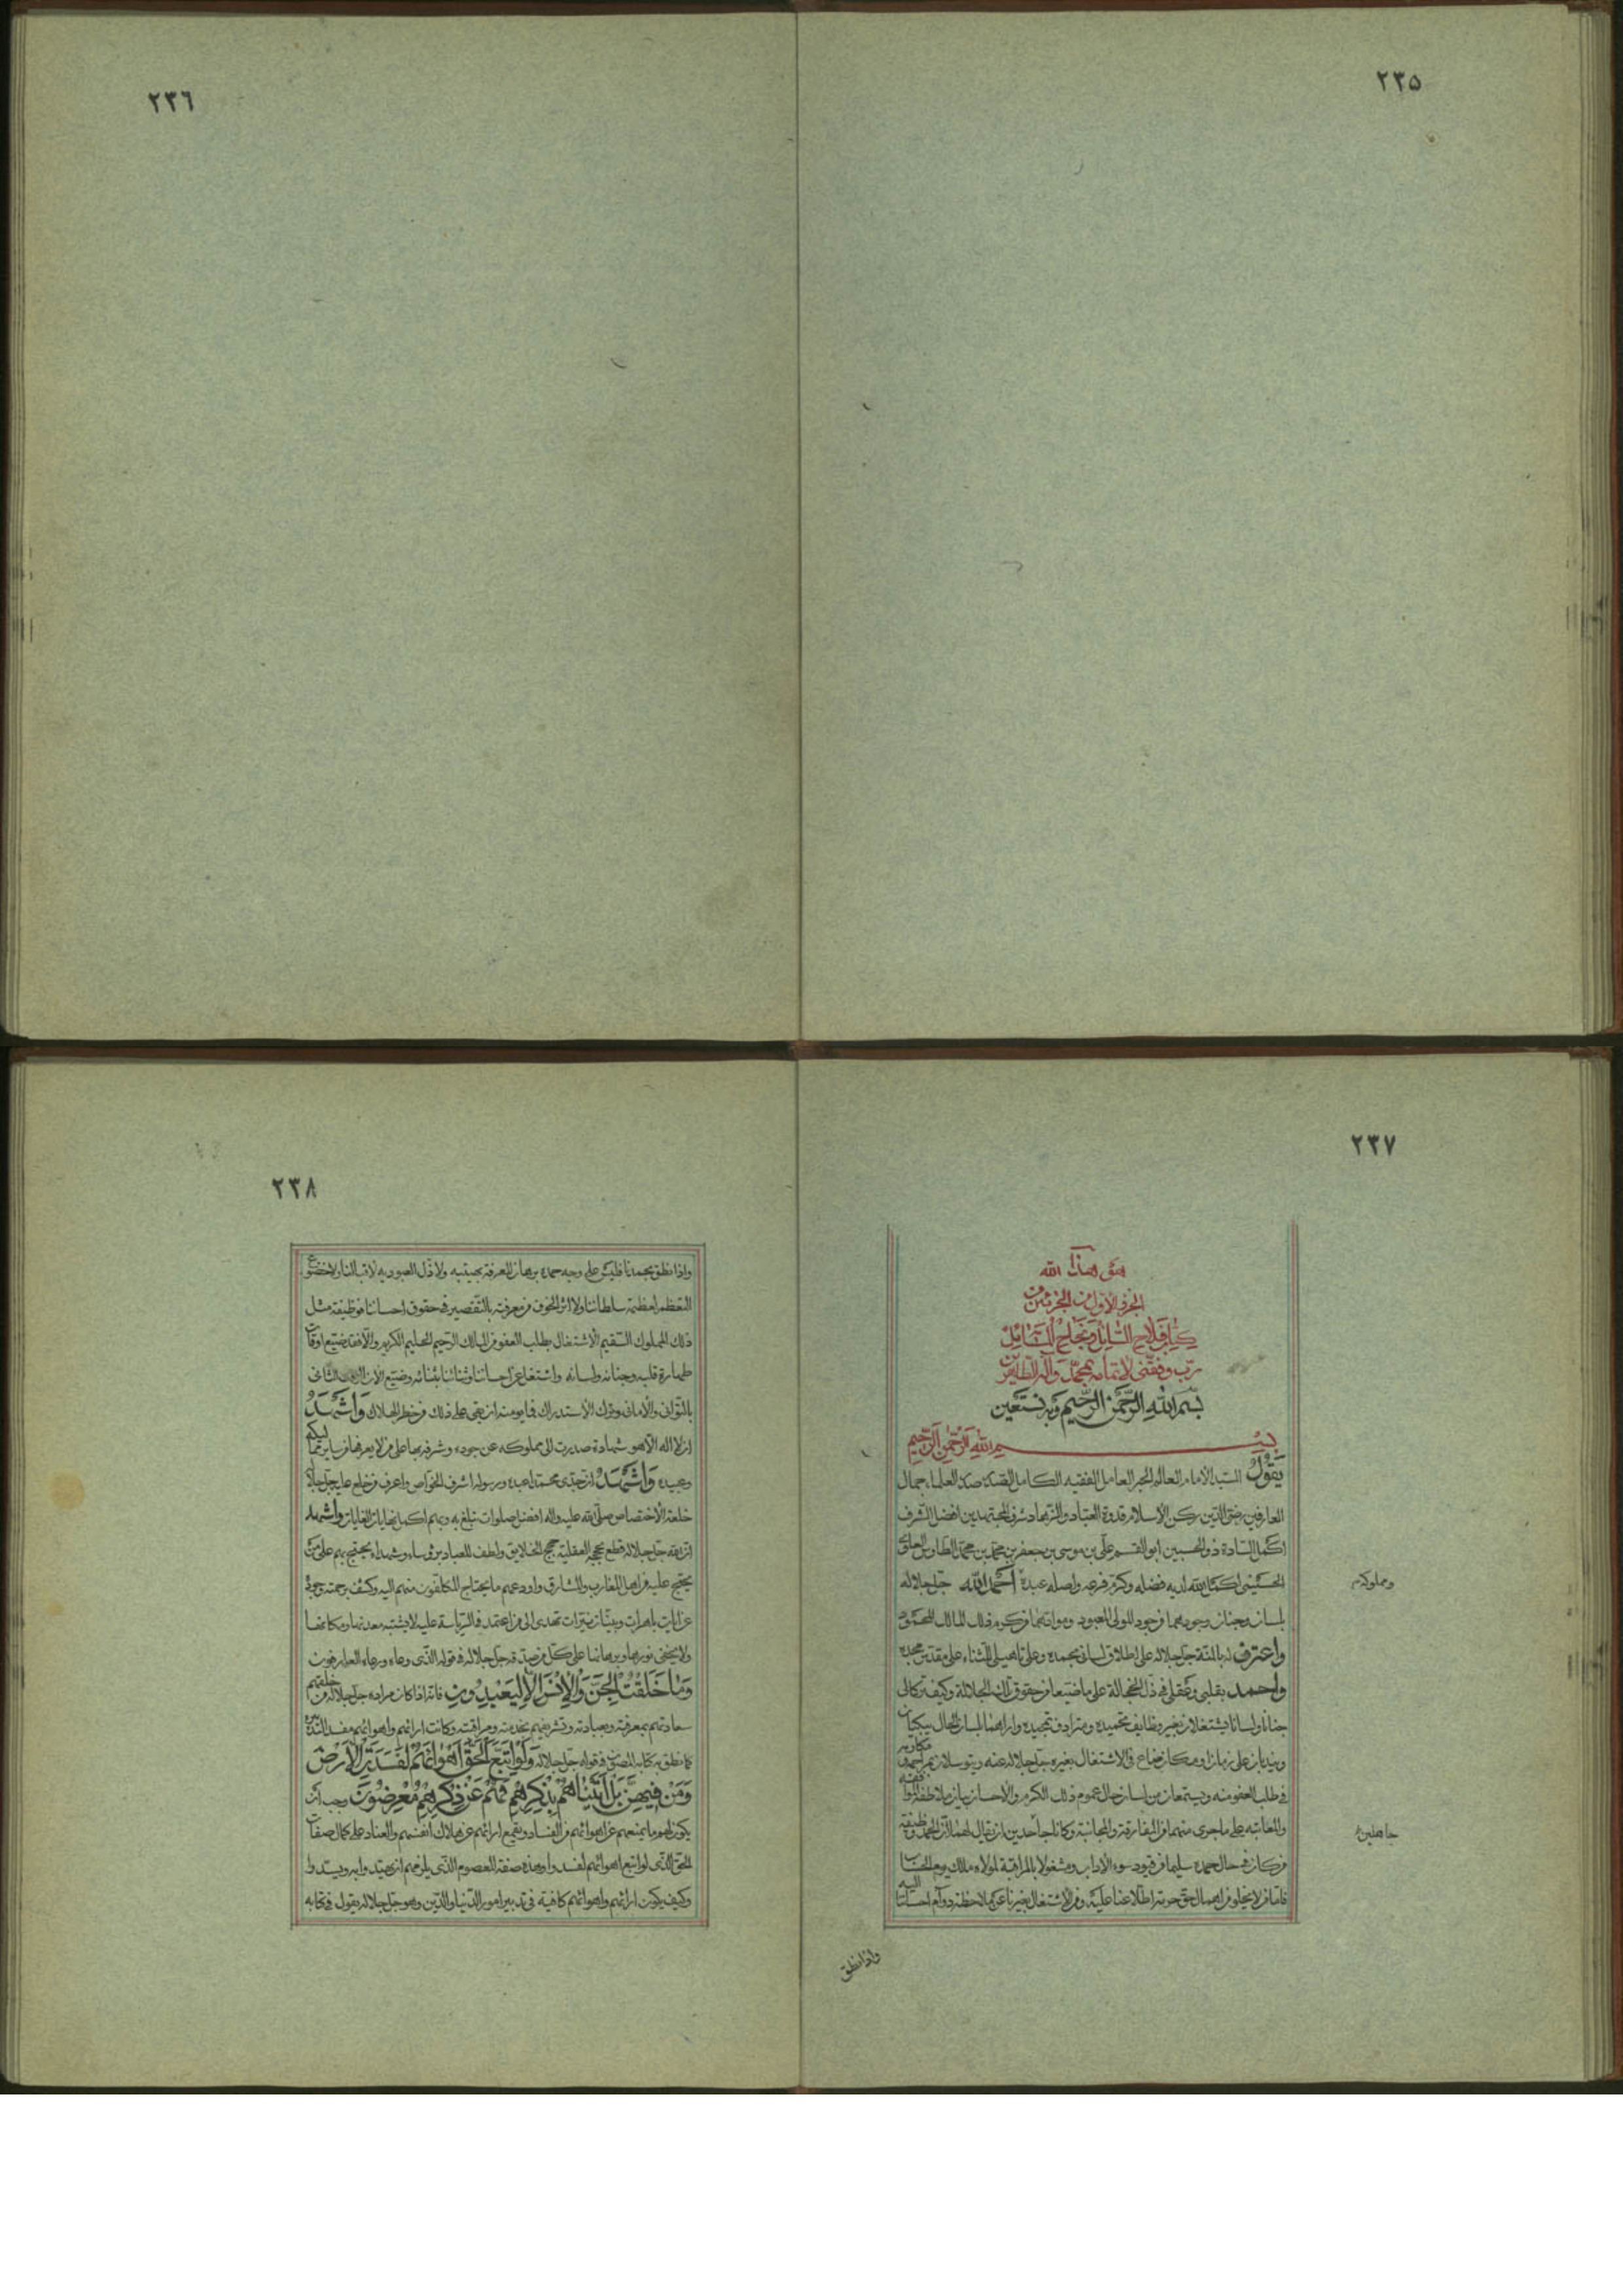 ٢٣٥
٢٣٦
٢٣٧
هو هذا الله
الجزء الاول من الجزئين من
كتاب فلاح السائل ونجاح المسائل
رب وفقنى لاتمامه بمحمد وآله الطاهرين
بسم الله الرحمن الرحيم وبه نستعين
بسم الله الرحمن الرحيم
يقول السيد الامام العالم الحبر العامل الفقيه الكامل العلماء جمال
العارفين رضى الدين ركن الاسلام قدوة العباد والزهاد شرف المجتهدين افضل الشرف
اكمل السادة ذو الحسبين ابو القسم على بن موسى بن جعفر بن محمد بن محمد الطاوس العلوى
الحسينى الله لديه فضله وكرم فرعه واصله عبده احمد الله جل جلاله
بلسان وجنان وجودهما من جود المولى المعبود ومواتهما من كرم ذلك المالك المحمود
واعترف له بالمنة جل جلاله على اطلاق لسانى بحمده وعلى تاهيلى للثناء على مقدس مجده
واحمد بقلبى وعقلى فى ذل الخجالة على ما ضيعا من حقوق تلك الجلالة وكيف تركانى
جنانا ولسانا يشتغلان بغير وظايف تحميده ومترادف تمجيده واراهما لسان الحال يبكيان
ويندبان على زمان او مكان ضاع فى الاشتغال بغيره جل جلاله عنه ويتوسلان بمراحمه و مكارمه
فى طلب العفو منه ويستمعان من لسان حال عموم ذلك الكرم والاحسان
والمعاتبة على ما جرى منهما من المفارقة والمجانبة وكانا جاحدين ان يقال لهما لان الحمد وظيفة
من كان فى حال حمده سليما من قيود سوء الاداب ومشغولا بالمراقبة لمولاه مالك يوم الحساب
فاما من لا يخلو من اهمال حق حرمة اطلاعنا عليه ومن الاشتغال بغيرنا عن ملاحظة دوام احساننا اليه
ومملوكه
جاهلين
واذا نطق
٢٣٨
واذا نطق بحمدنا فليس على وجه حمده برهان المعرفة بهيبته ولا ذل العبودية لادب الثناء ولا خضوع
التعظيم لعظمة سلطاننا ولا اثر الخوف من معرفته بالتقصير فى حقوق احساننا فوظيفة مثل
ذلك المملوك السقيم الاشتغال بطلب العفو من المالك الرحيم الحليم الكريم والا فقد ضيع اوقات
طهارة قلبه وجنانه ولسانه واشتغل عن احساننا وثنائنا بثنائه وضيع الان الزمان الثانى
بالتوانى والامانى وترك الاستدراك فما يومنه ان بقى على ذلك من خطر الهلاك واشهد
ان لا اله الا هو شهادة صدرت الى مملوكه عن جوده وشرفه بها على من لا يعرفها من ساير مماليكه
وعبيده واشهد ان جدى محمدا عبده ورسوله اشرف الخواص واعرف من خلع عليه جل جلاله
خلعة الاختصاص صلى الله عليه واله افضل صلوات تبلغ به وبهم اكمل نهايات الغايات واشهد
ان الله جل جلاله قطع بحجج العقلية حجج الخلايق ولطف للعباد برؤساء وشهداء يحتج بهم على من
يحتج عليه من اهل المغارب والمشارق واودعهم ما يحتاج المكلفون منهم اليه وكشف برحمته وجوده
عن ايات باهرات وبينات نيرات تهدى الى من اعتمد فى الرياسة عليه لا يشتبه معدنها ومكانها
ولا يخفى نورها وبرهانها على كل من صدقه جل جلاله فى قوله الذى وعاه ورعاه العارفون
وما خلقت الجن والانس الا ليعبدون فانه اذا كان مراده جل جلاله من خلقهم
سعادتهم بمعرفته وبعبادته وتشريفهم بخدمته ومراقبته وكانت ارائهم واهوائهم مفسد التدبير
كما نطق به كتابه المصون فى قوله جل جلاله ولو اتبع الحق اهوائهم لفسدت الارض
ومن فيهن بل اتيناهم بذكرهم فهم عن ذكرهم معرضون وجب ان
يكون لهم ما يمنعهم عن اهوائهم من الفساد ويقمع ارائهم عن هلاك انفسهم والعناد على كمال صفات
الحق الذى لو اتبع اهوائهم لفسدوا وهذه صفة المعصوم الذى يلزمهم ان يهتدوا به ويسددوا
وكيف يكون ارائهم واهوائهم كافية فى تدبير امور الدنيا والدين وهو جل جلاله يقول فى كتابه